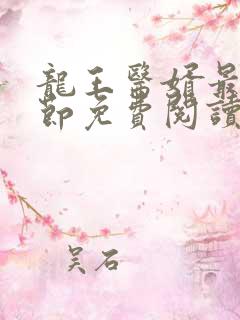 龍王醫婿最
節免費閱讀
吴石